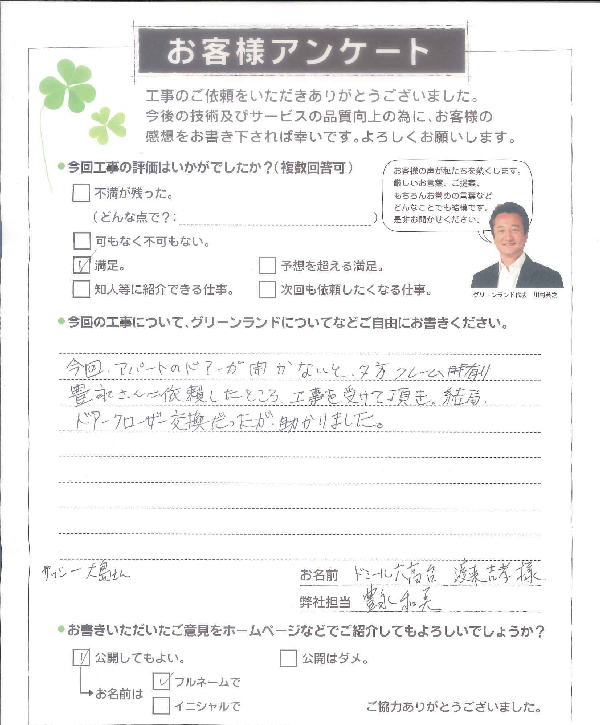 お客様アンケート
工事のご依頼をいただきありがとうございました。
今後の技術及びサービスの品質向上の為に、お客様の
感想をお書き下されば幸いです。よろしくお願いします。
●今回工事の評価はいかがでしたか?(複数回答可)
不満が残った。
(どんな点で?: )
可もなく不可もない。
満足。
予想を超える満足。
知人等に紹介できる仕事。
次回も依頼したくなる仕事。
お客様の声が私たちを熱くします。
厳しいお言葉、ご提案、
もちろんお褒めの言葉など
どんなことでも結構です。
是非お聞かせください。
グリーンランド代表
●今回の工事について、グリーンランドについてなどご自由にお書きください。
今回、アパートのドアーが開かないと、夕方クレーム
豊永さんに依頼したところ、工事を受けて頂き、結局、
ドアークローザー交換だったが、助かりました。
サッシー大島さん
お名前 ドミール大高台 様
弊社担当 豊永和美
●お書きいただいたご意見をホームページなどでご紹介してもよろしいでしょうか?
公開してもよい。
公開はダメ。
お名前は
フルネームで
イニシャルで
ご協力ありがとうございました。